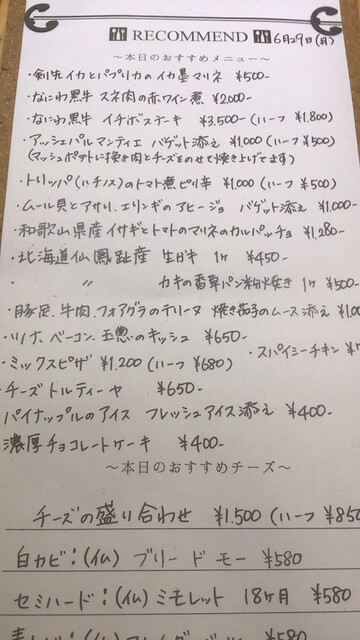 RECOMMEND 6月29日(月)
～本日のおすすめメニュー～
・剣先イカとパプリカのイカ墨マリネ ¥500-
・なにわ黒牛 スネ肉の赤ワイン煮 ¥2,000-
・なにわ黒牛 イチボステーキ ¥3,500-(ハーフ ¥1,800)
・アッシェパルマンティエ バゲット添え ¥1,000(ハーフ ¥500)
(マッシュポテトに挽き肉とチーズとのせて焼き上げてます)
・トリッパ(ハチノス)のトマト煮ピリ辛 ¥1,000(ハーフ ¥500)
・ムール貝とアサリ、エリンギのアヒージョ バゲット添え ¥1,000-
・和歌山県産 イサギとトマトのマリネのカルパッチョ ¥1,280-
・北海道仙鳳趾産 生ガキ 1ヶ ¥450-
〃 カキの香草パン粉焼き 1ヶ ¥500-
・豚足、牛肉、フォアグラのテリーヌ 焼き茄子のムース添え
・ツナ、ベーコン、玉葱のキッシュ ¥650-
・スパイシーチキン
・ミックスピザ ¥1,200(ハーフ ¥680)
・チーズトルティーヤ ¥650-
パイナップルのアイス フレッシュアイス添え ¥400-
濃厚チョコレートケーキ ¥400-
～本日のおすすめチーズ～
チーズの盛り合わせ ¥1,500(ハーフ ¥850
白カビ:(仏) ブリー ド モー ¥580
セミハード:(仏) ミモレット 18ヶ月 ¥580
¥580